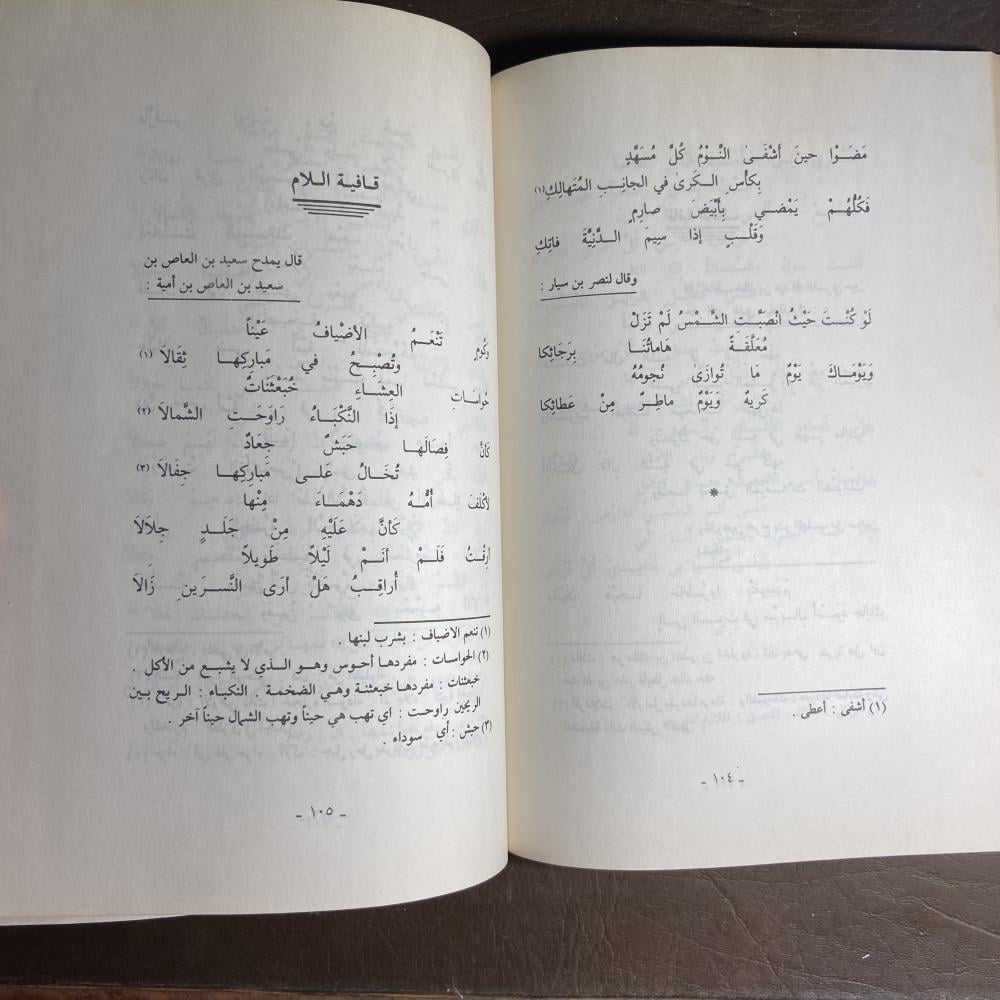 مَضَوْا حينَ أَشْفَىٰ النَّوْمُ كُلَّ مُسَهَّدٍ
بِكأسِ الـكَرىٰ في الجانِبِ المُتَهالِكِ(١)
فَكُلُّهُمْ يَمْضي بِأَبْيَضَ صارِمٍ
وَقَلْبٍ إذا سِيمَ الـدَّنِيَّةَ فاتِكِ
وقال لنصر بن سيار :
لَوْ كُنْتَ حَيْثُ انْصَبَّتِ الشَّمْسُ لَمْ تَزَلْ
مُعَلَّقَةً هَاماتُنَا بِرَجَائِكا
وَيَوْمَاكَ يَوْمٌ مَا تُوازَىٰ نُجومُهُ
كَريهٌ وَيَوْمٌ ماطِرٌ مِنْ عَطائِكا
*
(١) أشفى : أعطى .
- ١٠٤ -
قـافيـة الـلام
قال يمدح سعيد بن العاص بن
سعيد بن العاص بن أمية :
وَكُومٍ تَنْعَمُ الأضْيافُ عَيْناً
وتُصْبِحُ في مَبارِكِها ثِقَالاَ (١)
حُواسَاتِ العِشَاءِ خُبَعْثَنَاتٌ
إذَا النَّكْبَاءُ رَاوَحَتِ الشَّمالاَ (٢)
كَأنَّ فِصَالَها حَبَشٌ جِعَادٌ
تُخَالُ عَلى مَبارِكِها جِفَالاَ (٣)
لأكْلَفَ أُمُّهُ دَهْمَاءَ مِنْها
كَأنَّ عَلَيْهِ مِنْ جَلَدٍ جِلاَلاَ
أرِقْتُ فَلَمْ أنَمْ لَيْلاً طَويلاً
أُراقِبُ هَلْ أرَى النَّسرَينِ زَالاَ
(١) تنعم الاضياف : بشرب لبنها .
(٢) الحواسات : مفردها أحوس وهو الـذي لا يشبع من الأكل .
خبعثنات : مفردهـا خبعثنة وهي الضخمة . النكباء : الريح بين
الريحين راوحت : اي تهب هي حيناً وتهب الشمال حيناً آخر .
(٣) حبش : أي سوداء .
- ١٠٥ -